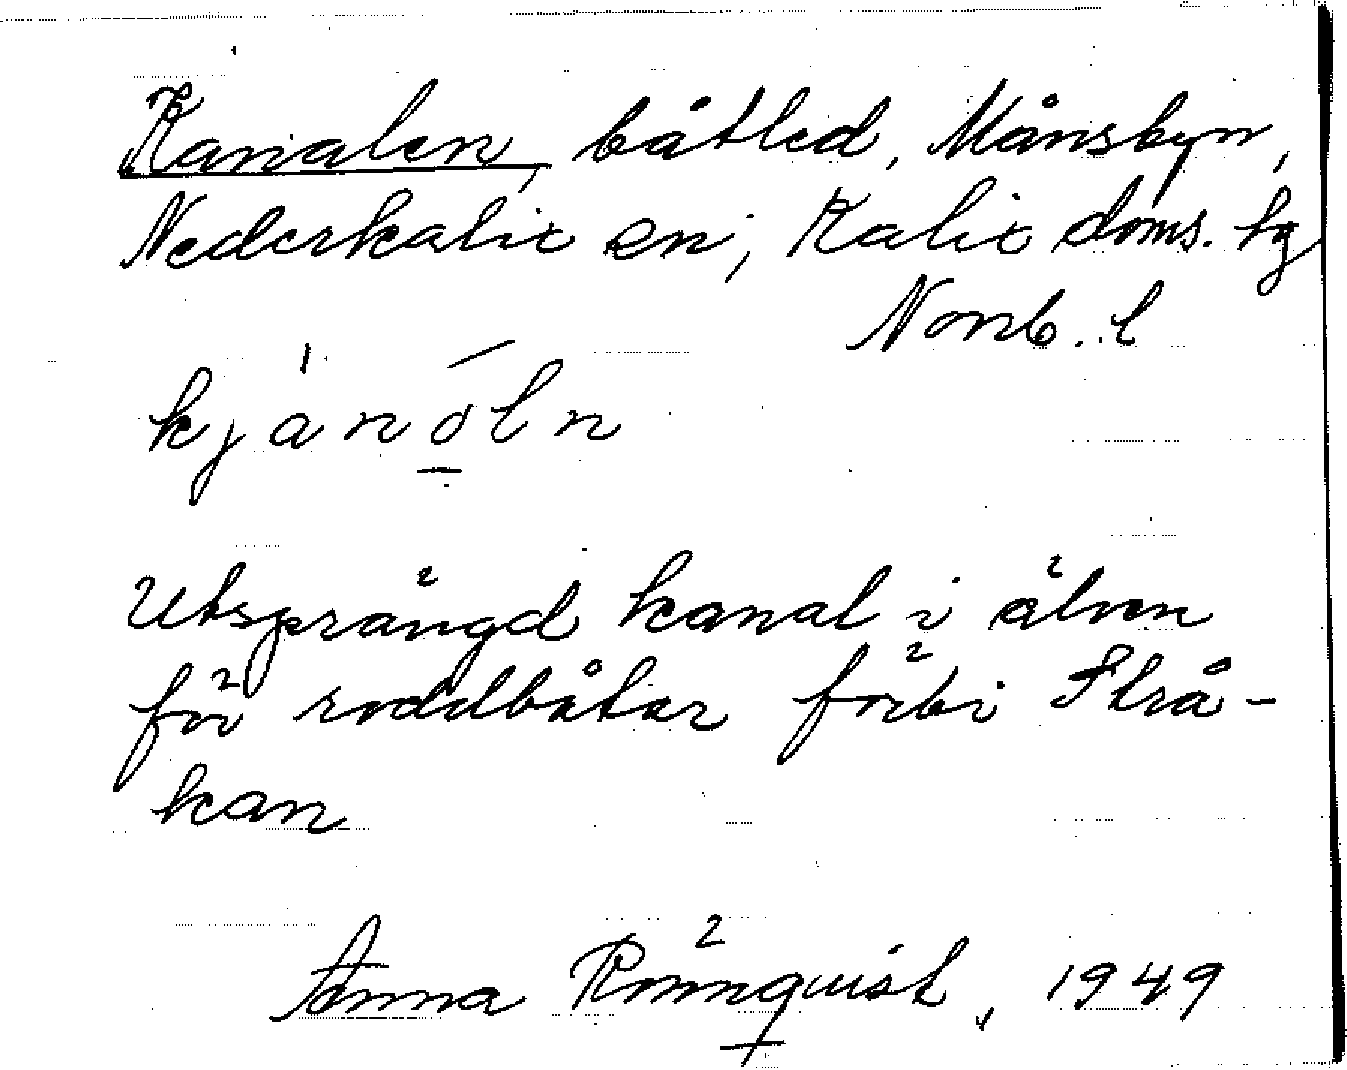 Kanalen, båtled, Månsbyn,
Nederkalix sn; Kalix doms. tg
Norrb. l
kjánóln
Utsprängd kanal i älven
för roddbåtar förbi Strå-
kan
Anna Rönnquist, 1949